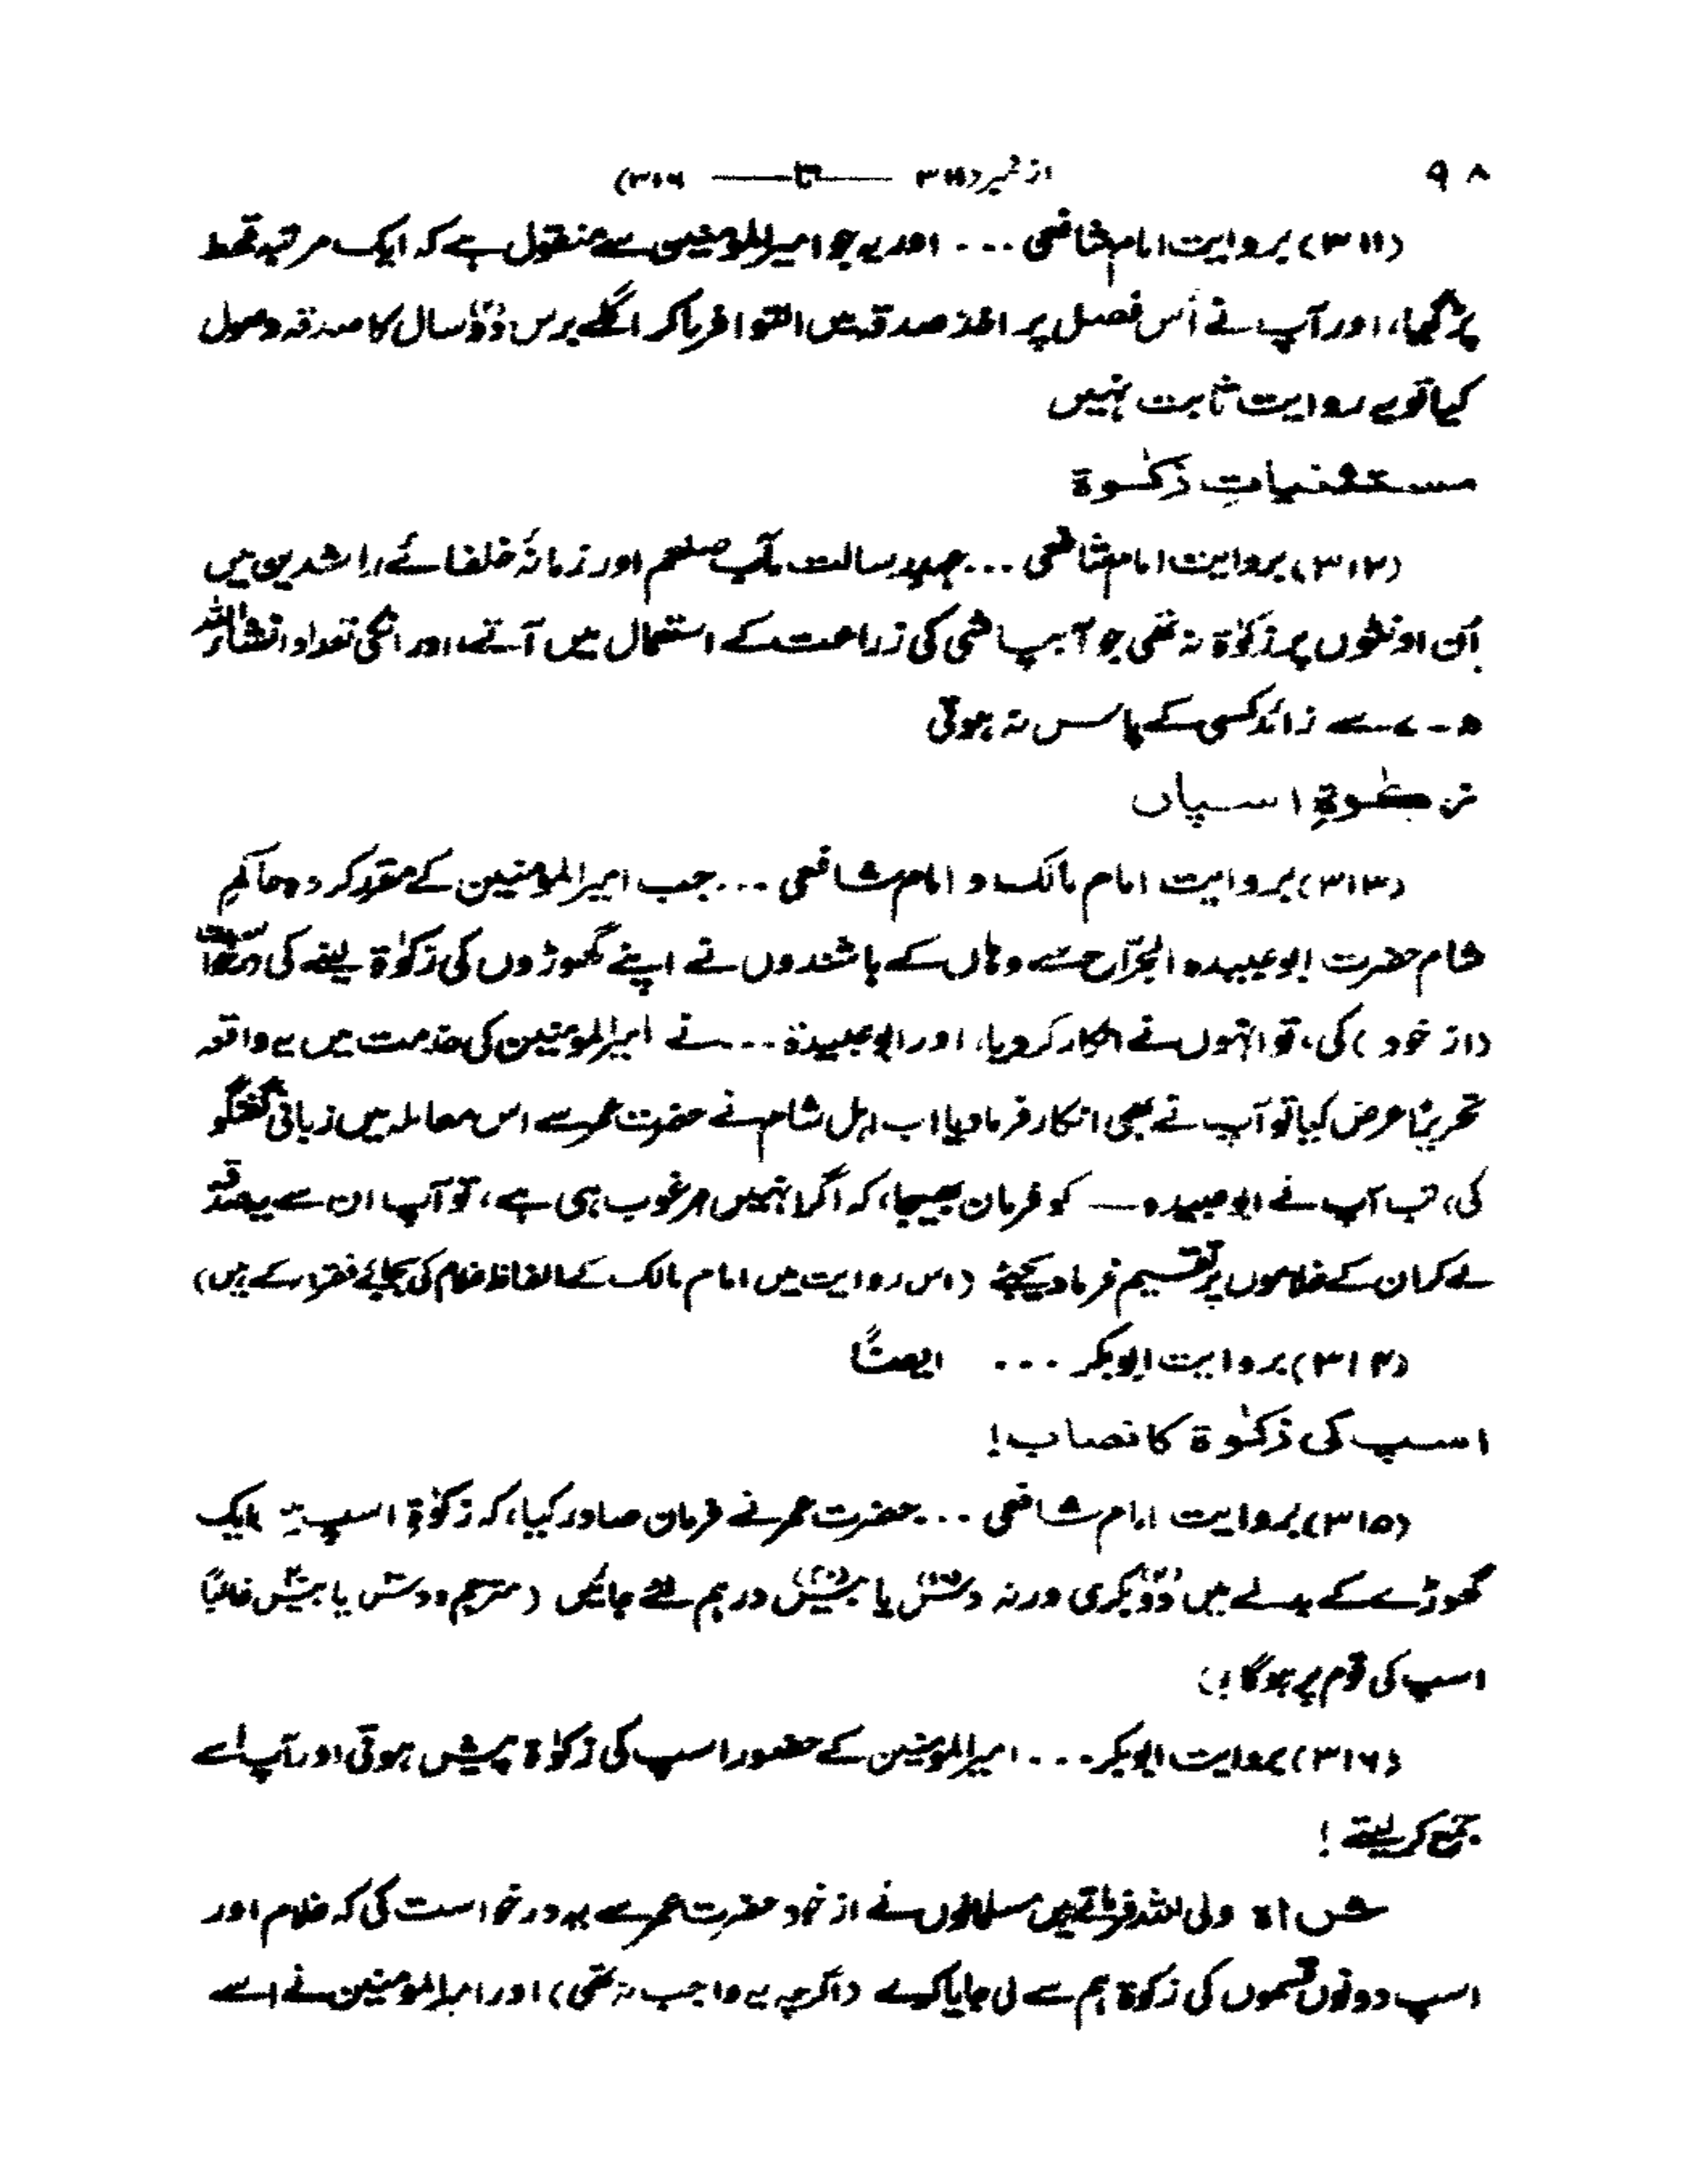 ۹۸ از نمبر (۳۱۱ ــــ تا ــــ ۳۱۶)
(۳۱۱) بروایت امام شافعی ... اور یہ جو امیرالمؤمنین سے منقول ہے کہ ایک مرتبہ قحط
پڑ گیا، اور آپ نے اُس فصل پر اخذ صدقہ میں التوا فرما کر اگلے برس دو۲ سال کا صدقہ وصول
کیا تو یہ روایت ثابت نہیں
مستثنیاتِ زکوٰۃ
(۳۱۲) بروایت امام شافعی ... عہد رسالت مآب صلعم اور زمانۂ خلفائے راشدین میں
اُن اونٹوں پر زکوٰۃ نہ تھی جو آبپاشی کی زراعت کے استعمال میں آتے، اور انکی تعداد انشاء اللہ
۵ - ۷ سے زائد کسی کے پاس نہ ہوتی
زکوٰۃِ اسپاں
(۳۱۳) بروایت امام مالک و امام شافعی ... جب امیرالمؤمنین کے مقرر کردہ حاکم
شام حضرت ابو عبیدہ الجرّاح سے وہاں کے باشندوں نے اپنے گھوڑوں کی زکوٰۃ لینے کی درخواست
(از خود) کی، تو انہوں نے انکار کر دیا، اور ابو عبیدۃ ... نے امیرالمؤمنین کی خدمت میں یہ واقعہ
تحریرًا عرض کیا تو آپ نے بھی انکار فرما دیا اب اہل شام نے حضرت عمر سے اس معاملہ میں زبانی گفتگو
کی، تب آپ نے ابو عبیدہ — کو فرمان بھیجا، کہ اگر انہیں مرغوب ہی ہے، تو آپ ان سے یہ صدقہ
لے کر ان کے غلاموں پر تقسیم فرما دیجئے (اس روایت میں امام مالک کے الفاظ غلام کی بجائے فقرا کے ہیں)
(۳۱۴) بروایت ابوبکر ... ایضًا
اسپ کی زکوٰۃ کا نصاب!
(۳۱۵) بروایت امام شافعی ... حضرت عمر نے فرمان صادر کیا، کہ زکوٰۃِ اسپ میں ایک
گھوڑے کے بدلے میں دو۲ بکری ورنہ دس(۱۰) یا بیس(۲۰) درہم لئے جائیں (مترجم: دس یا بیس غالبًا
اسپ کی قوم پر ہوگا!)
(۳۱۶) بروایت ابوبکر ... امیرالمؤمنین کے حضور اسپ کی زکوٰۃ پیش ہوتی اور آپ اسے
جمع کر لیتے!
شاہ ولی اللہ فرماتے ہیں مسلمانوں نے از خود حضرت عمر سے یہ درخواست کی کہ غلام اور
اسپ دونوں قسموں کی زکوٰۃ ہم سے لی جایا کرے (اگرچہ یہ واجب نہ تھی) اور امیرالمؤمنین نے اسے